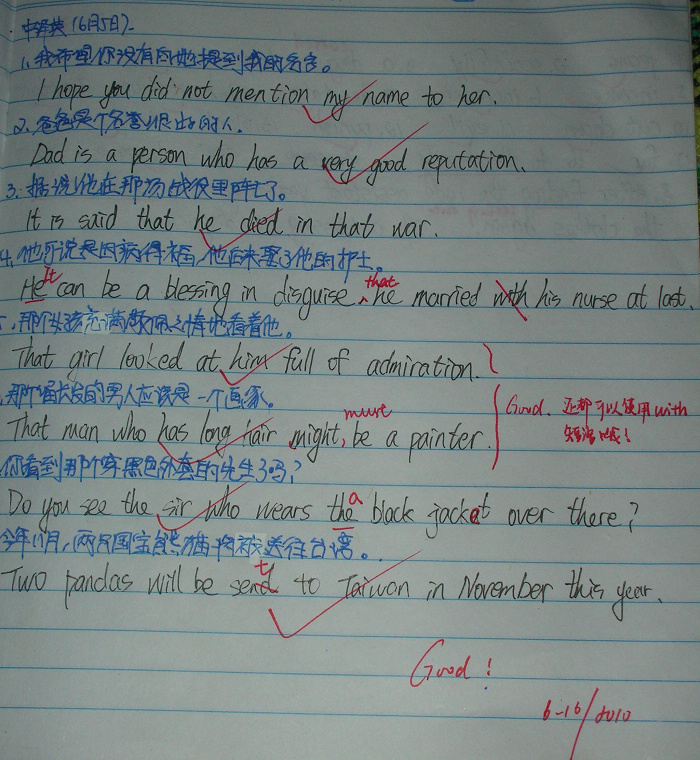 中译英(6月5日).
1. 我希望你没有向她提到我的名字。
I hope you did not mention my name to her.
2. 爸爸是个名誉很好的人.
Dad is a person who has a very good reputation.
3. 据说他在那场战役里阵亡了。
It is said that he died in that war.
4. 他可说是因病得福, 他后来娶了他的护士。
It that
He can be a blessing in disguise, he married with his nurse at last.
那个女孩充满敬佩之情地看着他。
That girl looked at him full of admiration.
那个留长发的男人应该是一个画家。
Good. 还都可以使用with
must
That man who has long hair might be a painter.
你看到那个穿黑色外套的先生了吗?
a
Do you see the sir who wears the black jacket over there?
今年11月, 两只国宝熊猫将被送往台湾。
t
Two pandas will be send to Taiwan in November this year.
Good!
6-16/2010